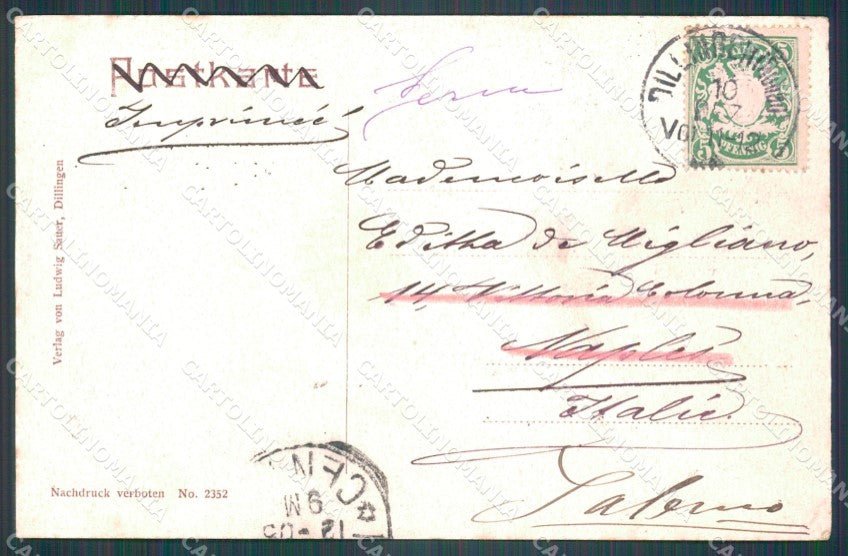 Postkarte
Imprimé
Mademoiselle
Editha de Migliano,
14, Vittoria Colonna,
Naples
Italie
Salerno
DILLINGEN
10
7
5
PFENNIG
5
Verlag von Ludwig Sauer, Dillingen
Nachdruck verboten No. 2352
9 M
12
CARTOLINOMANIA